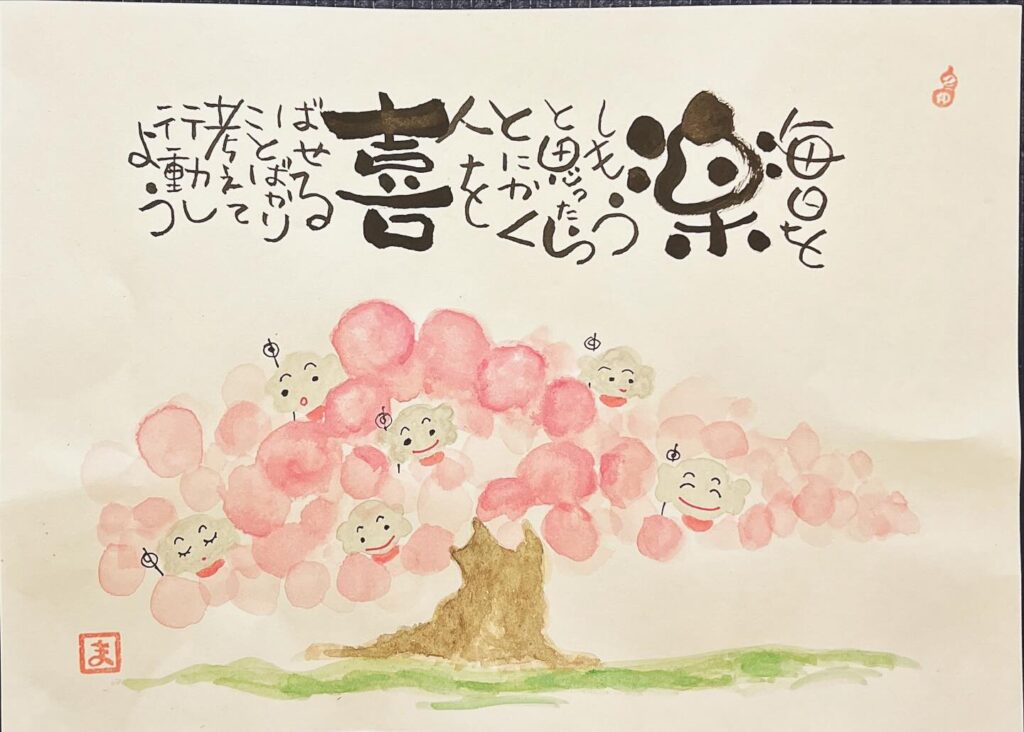 毎日を
楽
しもう
と思ったら
とにかく
人を
喜
ばせる
ことばかり
考えて
行動し
よう
ま